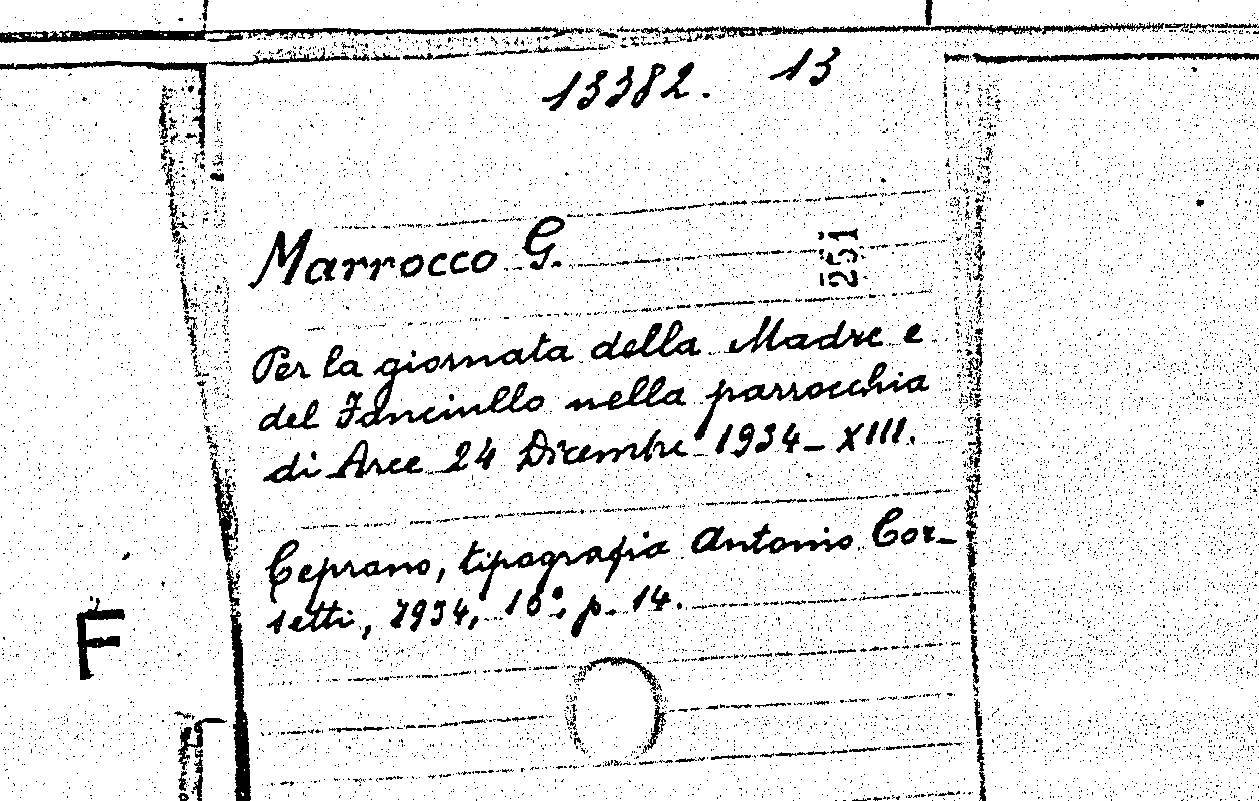 13382. 13
Marrocco G.
251
Per la giornata della Madre e
del Fanciullo nella parrocchia
di Arce 24 Dicembre 1934-XIII.
Ceprano, tipografia Antonio Cor-
setti, 1934, 16°, p. 14.
F